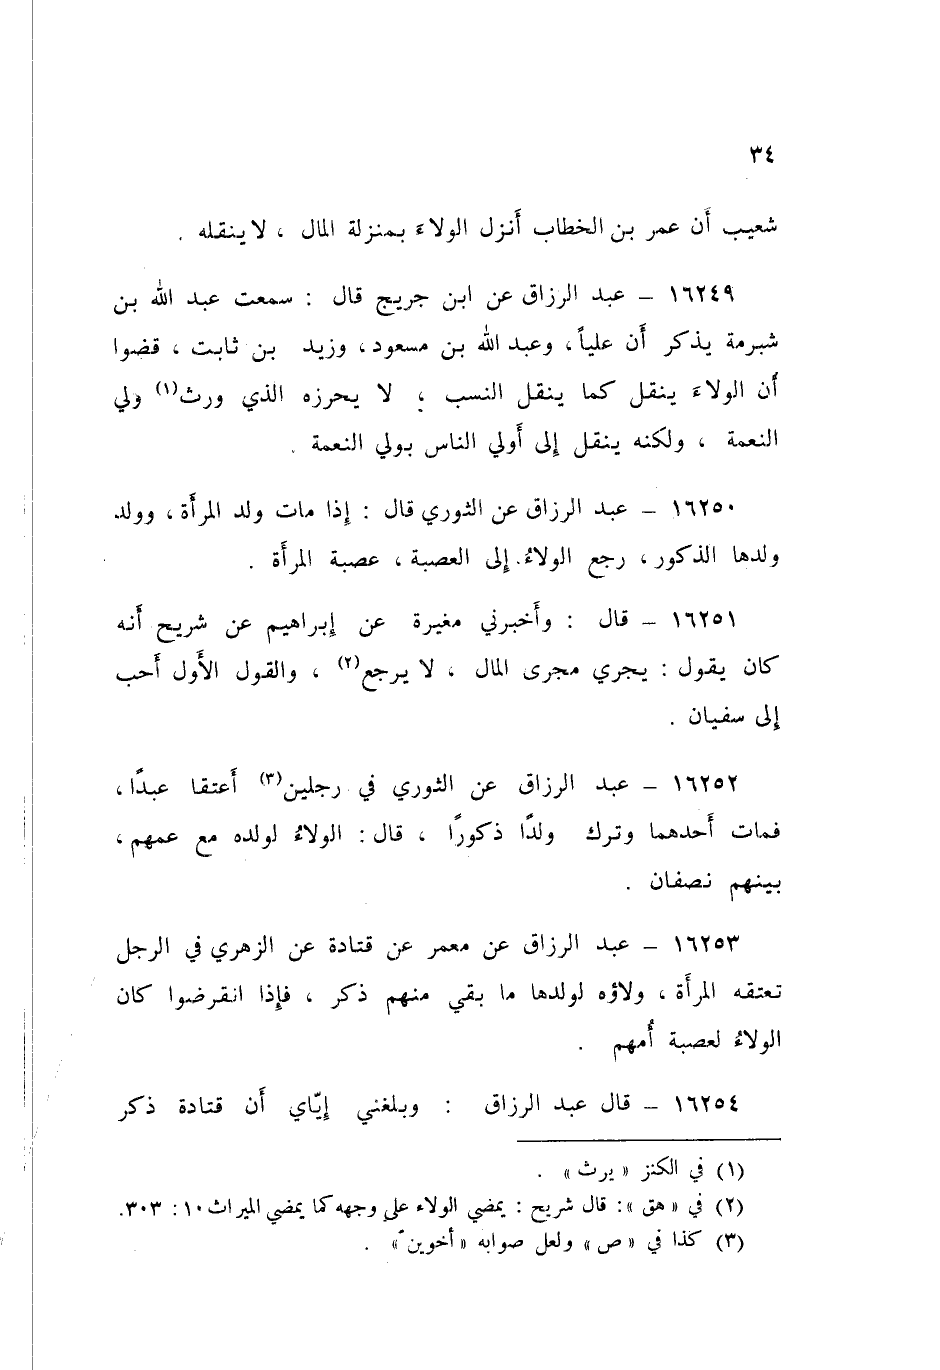 ٣٤
شعيب أَن عمر بن الخطاب أَنزل الولاءَ بمنزلة المال ، لا ينقله .
١٦٢٤٩ – عبد الرزاق عن ابن جريج قال : سمعت عبد الله بن
شبرمة يذكر أَن علياً ، وعبد الله بن مسعود ، وزيد بن ثابت ، قضوا
أَن الولاءَ ينقل كما ينقل النسب ، لا يحرزه الذي ورث(١) ولي
النعمة ، ولكنه ينقل إلى أَولي الناس بولي النعمة .
١٦٢٥٠ – عبد الرزاق عن الثوري قال : إذا مات ولد المرأَة ، وولد
ولدها الذكور ، رجع الولاءُ إلى العصبة ، عصبة المرأَة .
١٦٢٥١ – قال : وأَخبرني مغيرة عن إبراهيم عن شريح أَنه
كان يقول : يجري مجرى المال ، لا يرجع(٢) ، والقول الأَول أَحب
إلى سفيان .
١٦٢٥٢ – عبد الرزاق عن الثوري في رجلين(٣) أَعتقا عبدًا ،
فمات أَحدهما وترك ولدًا ذكورًا ، قال : الولاءُ لولده مع عمهم ،
بينهم نصفان .
١٦٢٥٣ – عبد الرزاق عن معمر عن قتادة عن الزهري في الرجل
تعتقه المرأَة ، ولاؤه لولدها ما بقي منهم ذكر ، فإذا انقرضوا كان
الولاءُ لعصبة أُمهم .
١٦٢٥٤ – قال عبد الرزاق : وبلغني إيّاي أَن قتادة ذكر
(١) في الكنز « يرث » .
(٢) في « هق » : قال شريح : يمضي الولاء على وجهه كما يمضي الميراث ١٠ : ٣٠٣.
(٣) كذا في « ص » ولعل صوابه « أخوين » .